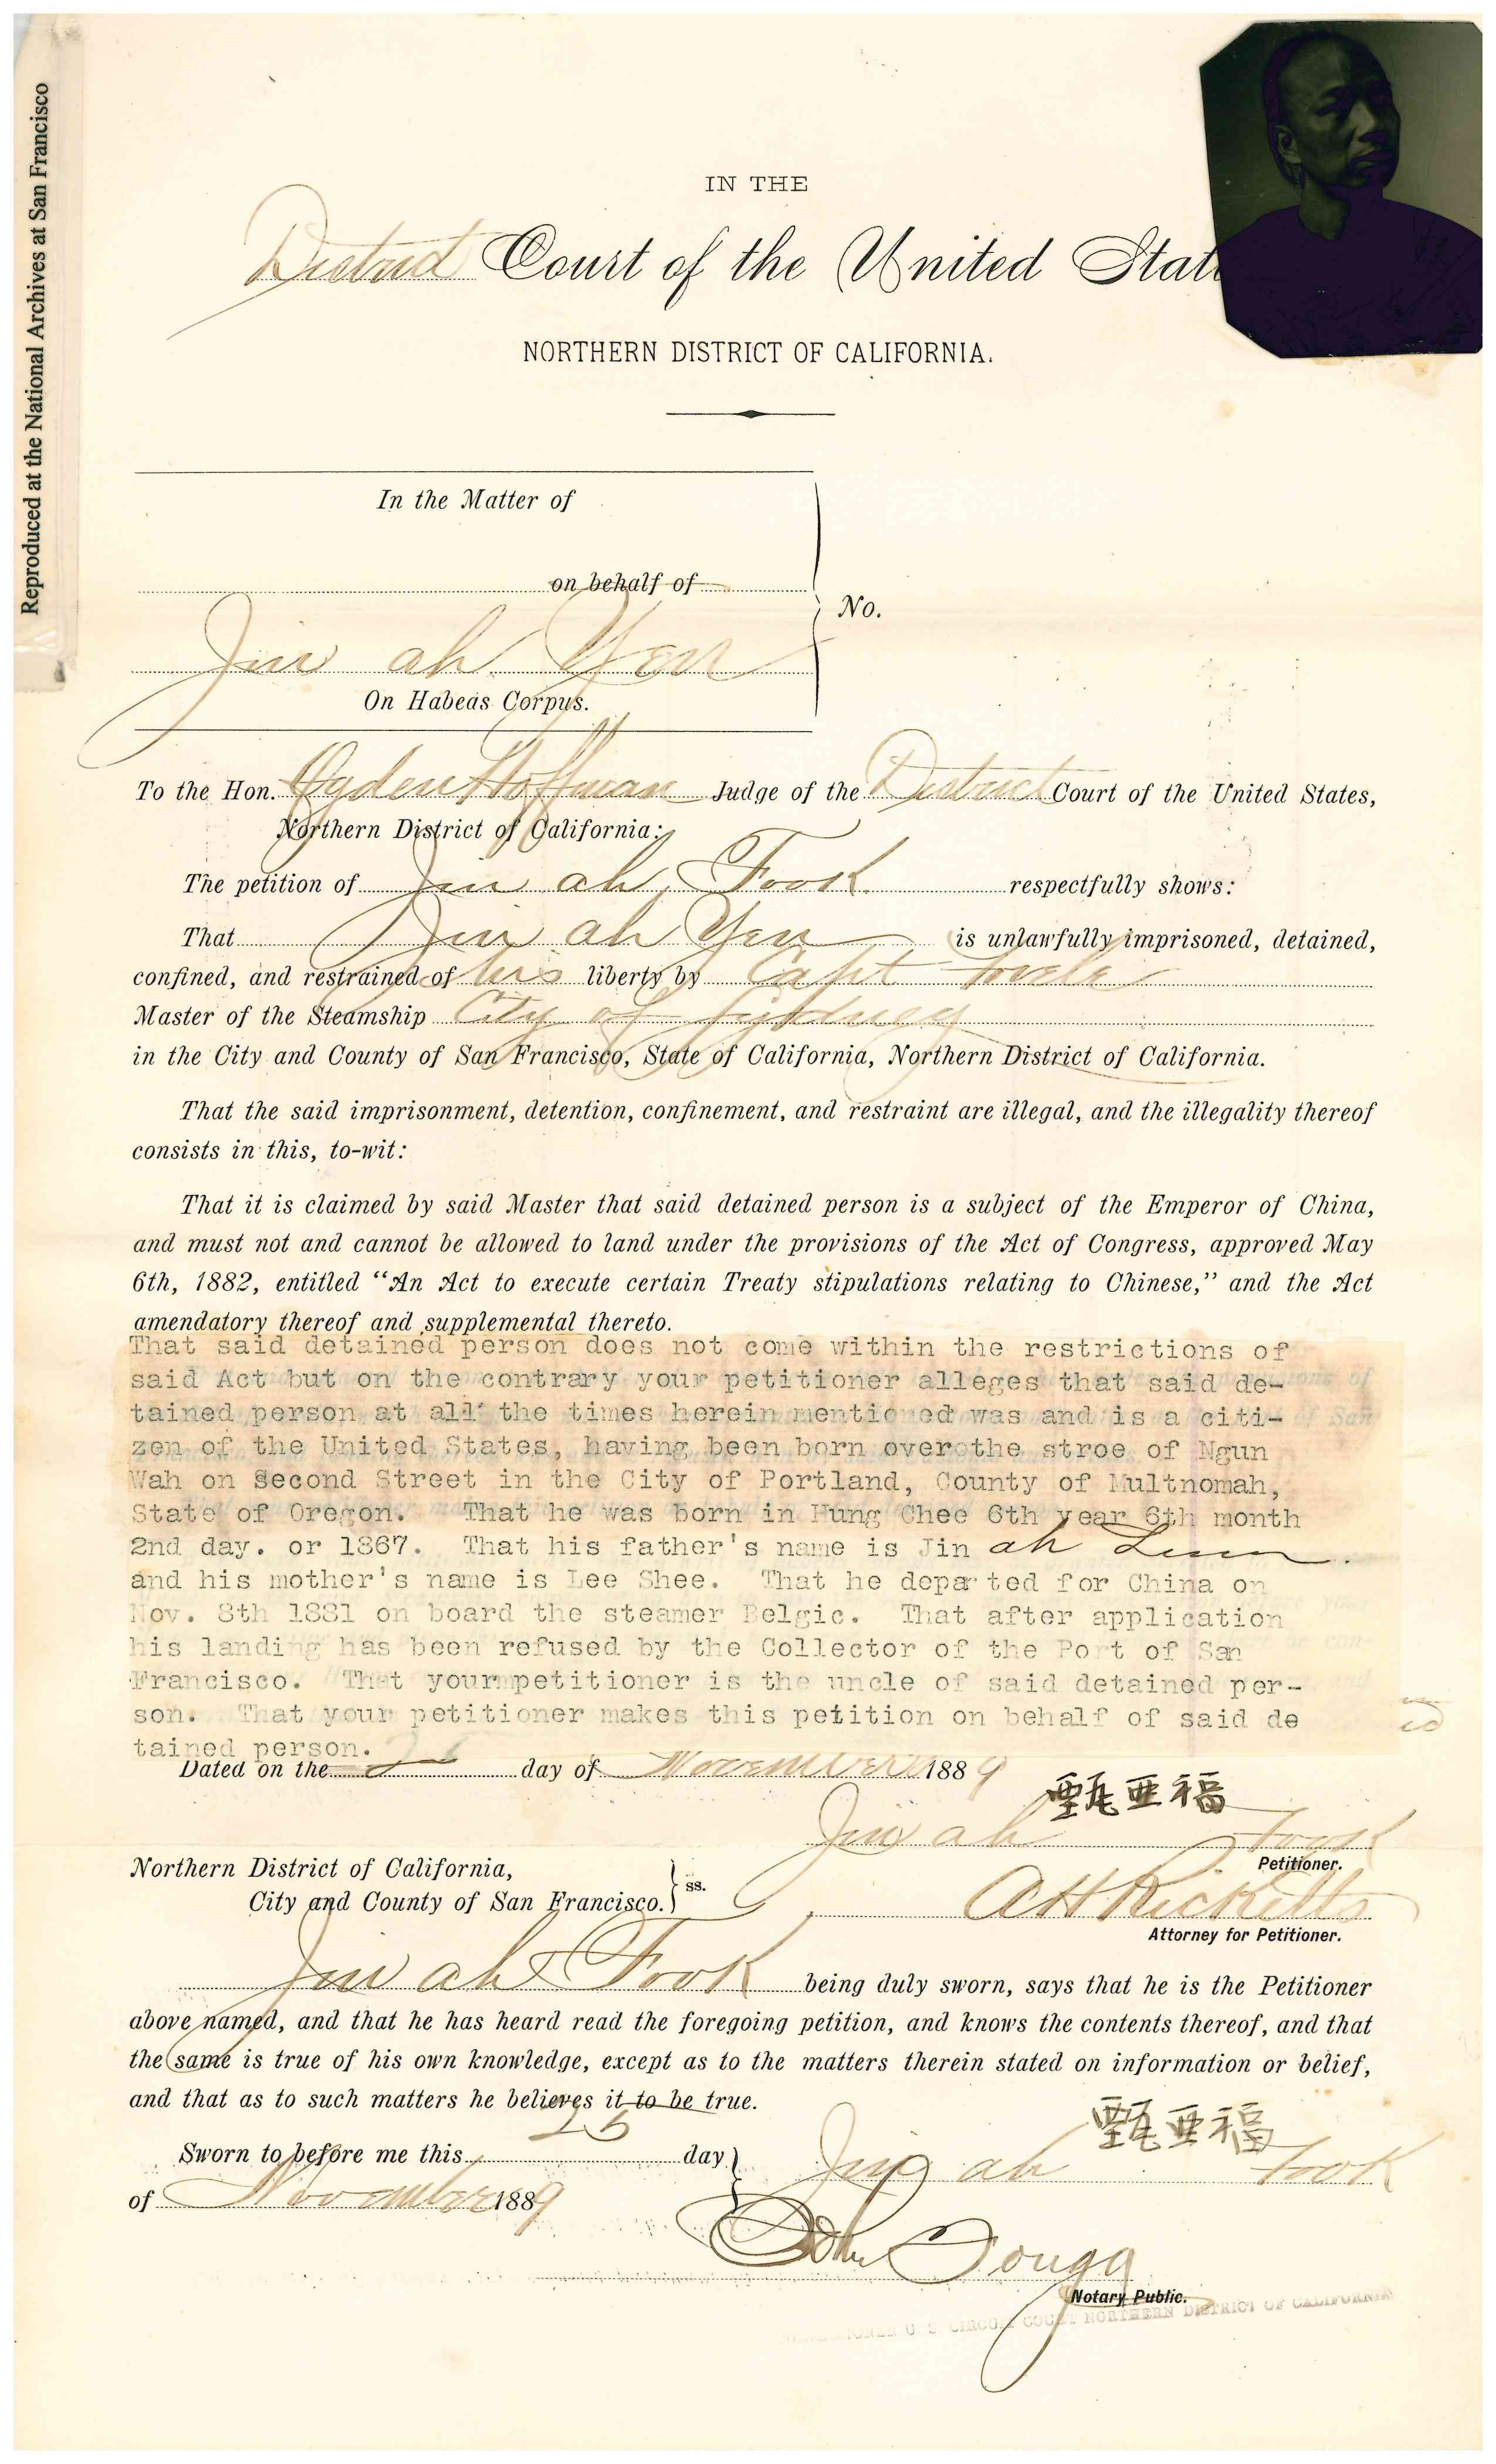 Reproduced at the National Archives at San Francisco
IN THE
District Court of the United Stat
NORTHERN DISTRICT OF CALIFORNIA.
In the Matter of
on behalf of
No.
Jin ah Yen
On Habeas Corpus.
To the Hon. Ogden Hoffman Judge of the District Court of the United States,
Northern District of California:
The petition of Jin ah Fook respectfully shows:
That Jin ah Yen is unlawfully imprisoned, detained,
confined, and restrained of his liberty by Capt
Master of the Steamship City of Sydney
in the City and County of San Francisco, State of California, Northern District of California.
That the said imprisonment, detention, confinement, and restraint are illegal, and the illegality thereof
consists in this, to-wit:
That it is claimed by said Master that said detained person is a subject of the Emperor of China,
and must not and cannot be allowed to land under the provisions of the Act of Congress, approved May
6th, 1882, entitled “An Act to execute certain Treaty stipulations relating to Chinese,” and the Act
amendatory thereof and supplemental thereto.
That said detained person does not come within the restrictions of
said Act but on the contrary your petitioner alleges that said de-
tained person at all the times herein mentioned was and is a citi-
zen of the United States, having been born over the stroe of Ngun
Wah on Second Street in the City of Portland, County of Multnomah,
State of Oregon. That he was born in Hung Chee 6th year 6th month
2nd day. or 1867. That his father's name is Jin ah
and his mother's name is Lee Shee. That he departed for China on
Nov. 8th 1881 on board the steamer Belgic. That after application
his landing has been refused by the Collector of the Port of San
Francisco. That your petitioner is the uncle of said detained per-
son. That your petitioner makes this petition on behalf of said de
tained person.
Dated on the day of November 1889
甄亚福
Jin ah Fook
Petitioner.
Northern District of California,
City and County of San Francisco. } ss.
A H Ricketts
Attorney for Petitioner.
Jin ah Fook being duly sworn, says that he is the Petitioner
above named, and that he has heard read the foregoing petition, and knows the contents thereof, and that
the same is true of his own knowledge, except as to the matters therein stated on information or belief,
and that as to such matters he believes it to be true.
甄亚福
Sworn to before me this 25 day
Jin ah Fook
of November 1889
John Fougg
Notary Public.
COMMISSIONER U S CIRCUIT COURT NORTHERN DISTRICT OF CALIFORNIA